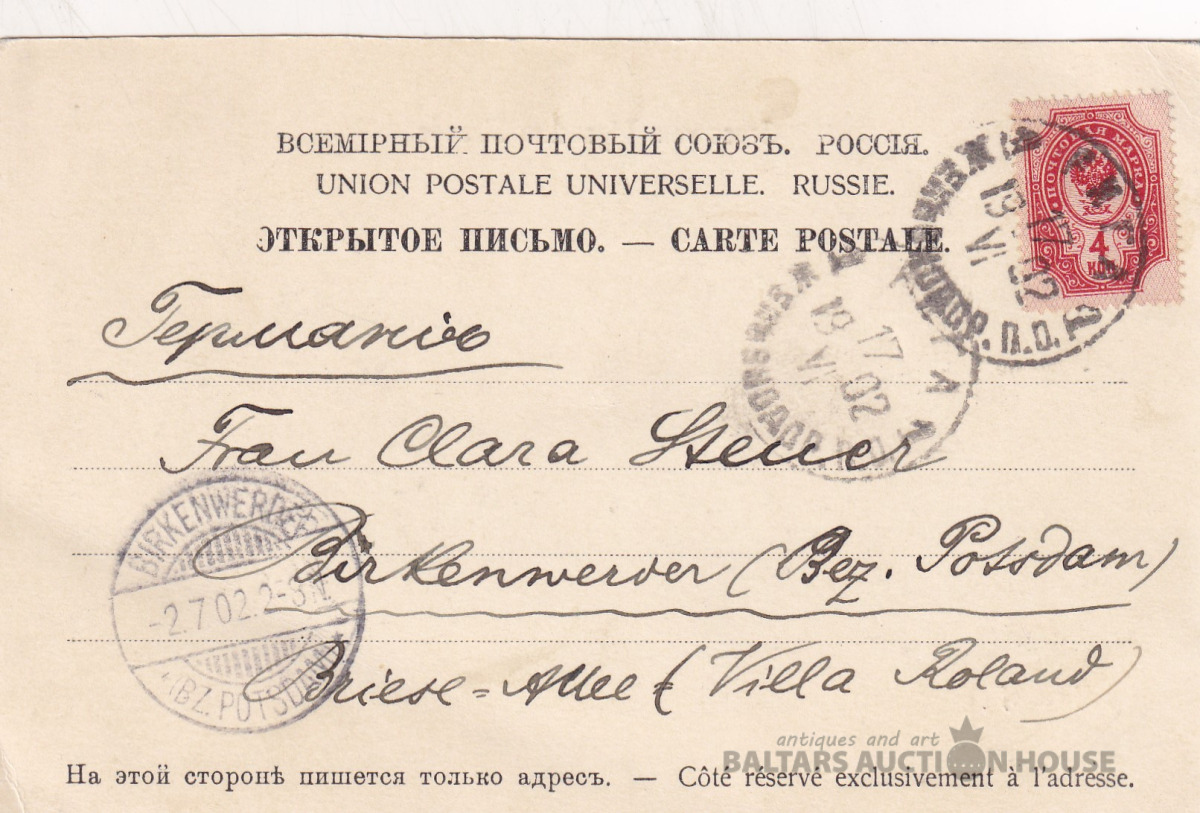 ВСЕМІРНЫЙ ПОЧТОВЫЙ СОЮЗЪ. РОССІЯ.
UNION POSTALE UNIVERSELLE. RUSSIE.
ОТКРЫТОЕ ПИСЬМО. — CARTE POSTALE.
ПОЧТОВАЯ МАРКА
4
КОП.
17
VI
02
19
П.О.
17
VI
02
19
Германію
Frau Clara Steuer
Birkenwerder (Bez. Potsdam)
Briese=Allee (Villa Roland)
BIRKENWERDER
-2.7.02.2-3N.
(BZ. POTSDAM)
На этой сторонѣ пишется только адресъ. — Côté réservé exclusivement à l'adresse.
antiques and art
BALTARS AUCTION HOUSE